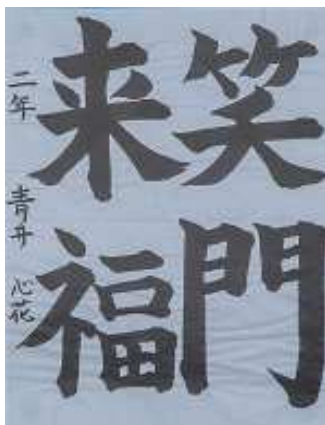 笑門
来福
二年 青井 心花